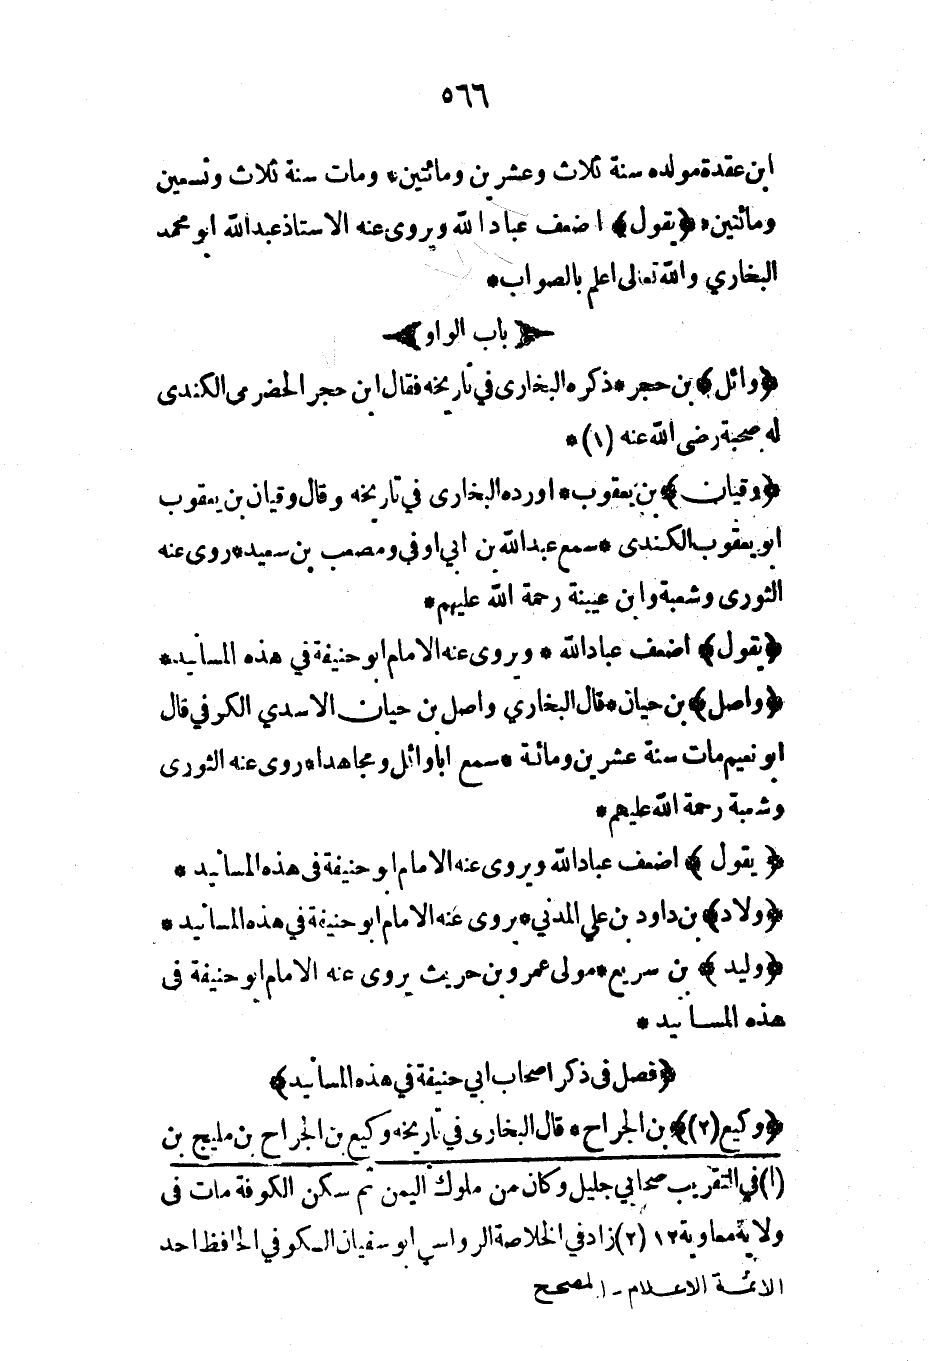 ٥٦٦
ابن عقدة مولده سنة ثلاث وعشرين ومائتين* ومات سنة ثلاث وتسعين
ومائتين* ﴿يقول﴾ اضعف عباد الله ويروى عنه الاستاذ عبدالله ابو محمد
البخاري والله تعالى اعلم بالصواب*
﴿باب الواو﴾
﴿وائل﴾ بن حجر* ذكره البخارى في تاريخه فقال ابن حجر الحضرمى الكندى
له صحبة رضى الله عنه (١)*
﴿وقيان﴾ بن يعقوب* اورده البخارى في تاريخه وقال وقيان بن يعقوب
ابو يعقوب الكندى* سمع عبدالله بن ابي اوفى ومصعب بن سعيد* روى عنه
الثورى وشعبة وابن عيينة رحمة الله عليهم*
﴿يقول﴾ اضعف عباد الله * ويروى عنه الامام ابو حنيفة في هذه المسانيد*
﴿واصل﴾ بن حيان* قال البخاري واصل بن حيان الاسدي الكوفي قال
ابو نعيم مات سنة عشرين ومائة * سمع ابا وائل ومجاهدا* روى عنه الثورى
وشعبة رحمة الله عليهم*
﴿يقول﴾ اضعف عباد الله ويروى عنه الامام ابو حنيفة فى هذه المسانيد *
﴿ولاد﴾ بن داود بن علي المدني* يروى عنه الامام ابو حنيفة في هذه المسانيد *
﴿وليد﴾ بن سريع* مولى عمرو بن حريث يروى عنه الامام ابو حنيفة فى
هذه المسانيد *
﴿فصل فى ذكر اصحاب ابي حنيفة في هذه المسانيد﴾
﴿وكيع (٢)﴾ بن الجراح* قال البخارى في تاريخه وكيع بن الجراح بن مليح بن
(١) في التقريب صحابي جليل وكان من ملوك اليمن ثم سكن الكوفة مات فى
ولاية معاوية ١٢ (٢) زاد في الخلاصة الرواسي ابو سفيان الكوفي الحافظ احد
الائمة الاعلام - ١٢ المصحح